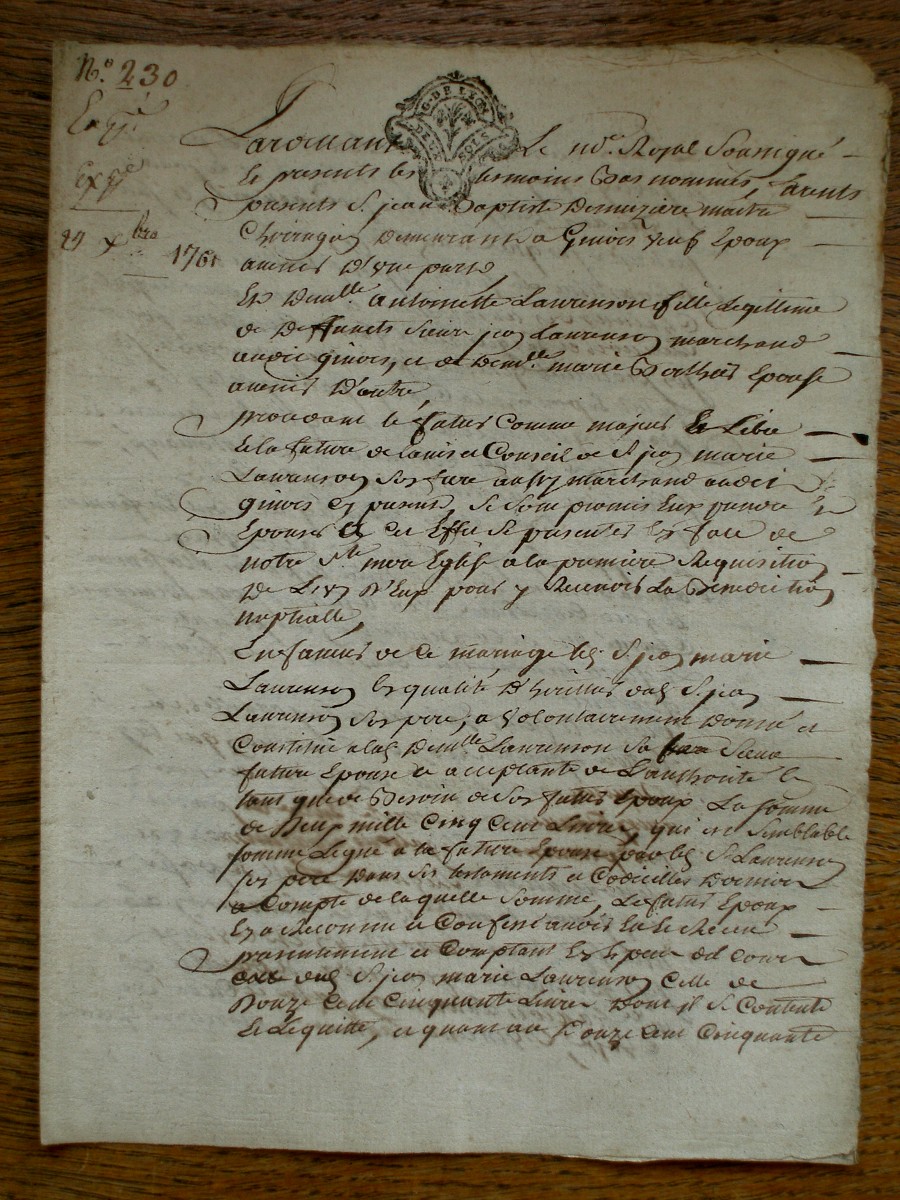 N.o 230
Exp.é
27 xbre
1761
G. DE LYON
DEUX SOLS
Pardevant Le no.re Royal Soussigné
et presents les temoins bas nommés, furent
presents S. jean Baptiste Demuzière maitre
Chirurgien demeurant a Givors veuf Epoux
avenir D'une part
Et Demlle antoinette Laurenson fille Legittime
de Deffuncts Sieur jean Laurenson marchand
audit givors, et de Demlle marie Epouse
avenir D'autre
procedant le futur Comme majeur et Libre
et la future de l'avis et Conseil de S. jean marie
Laurenson son frere aussy marchand audit
givors cy present, Se Sont promis Eux prendre En
Epoux et a Cet Effet Se presenter En face de
notre Ste mere Eglise a la premiere Requisition
De L'un D'Eux pour y Recevoir La Benediction
nuptialle,
En faveur de Ce mariage led. S. jean marie
Laurenson En qualité D'héritier dud. S. jean
Laurenson Son pere, a Volontairement Donné et
Constitué a lad. Demlle Laurenson Sa Sœur
future Epouse ce acceptante de L'authorité En
tant que de Besoin de Son futur Epoux La Somme
de Deux mille Cinq Cent Livres, qui est Semblable
Somme Legué a la future Epouse par led. S. Laurenson
Son pere Dans Ses testaments et Codicilles Derniers
a Compte de la quelle Somme, Le futur Epoux
a Reconnu et Confessé avoir Eu et Receu
presentement et Comptant En Especes du Cours
dud. S. jean marie Laurenson Celle de
Douze Cent Cinquante Livres Dont il Se Contente
et Le quitte, et quant aux Douze Cent Cinquante